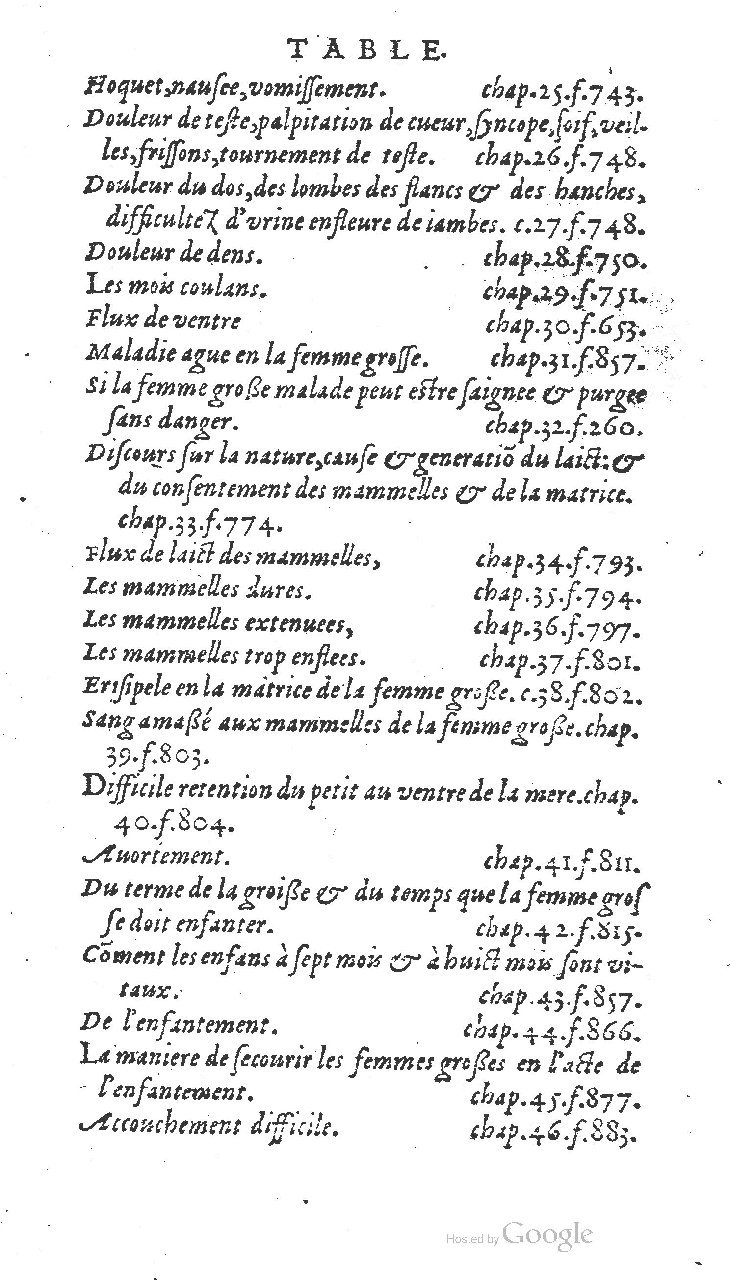 TABLE.
Hoquet,nauſee,vomiſſement. chap.25.f.743.
Douleur de teſte,palpitation de cueur,ſyncope,ſoif,veil-
les,friſſons,tournement de teſte. chap.26.f.748.
Douleur du dos,des lombes des flancs & des hanches,
difficultez d'vrine enfleure de iambes. c.27.f.748.
Douleur de dens. chap.28.f.750.
Les mois coulans. chap.29.f.751.
Flux de ventre chap.30.f.653.
Maladie ague en la femme groſſe. chap.31.f.857.
Si la femme große malade peut eſtre ſaignee & purgee
ſans danger. chap.32.f.260.
Diſcours ſur la nature,cauſe & generatiõ du laict: &
du conſentement des mammelles & de la matrice.
chap.33.f.774.
Flux de laict des mammelles, chap.34.f.793.
Les mammelles dures. chap.35.f.794.
Les mammelles extenuees, chap.36.f.797.
Les mammelles trop enflees. chap.37.f.801.
Eriſipele en la matrice de la femme große. c.38.f.802.
Sang amaßé aux mammelles de la femme große.chap.
39.f.803.
Difficile retention du petit au ventre de la mere.chap.
40.f.804.
Auortement. chap.41.f.811.
Du terme de la groiße & du temps que la femme groſ
ſe doit enfanter. chap.42.f.815.
Cõment les enfans à ſept mois & à huict mois ſont vi-
taux. chap.43.f.857.
De l'enfantement. chap.44.f.866.
La maniere de ſecourir les femmes großes en l'acte de
l'enfantement. chap.45.f.877.
Accouchement difficile. chap.46.f.883.
Hosted by Google